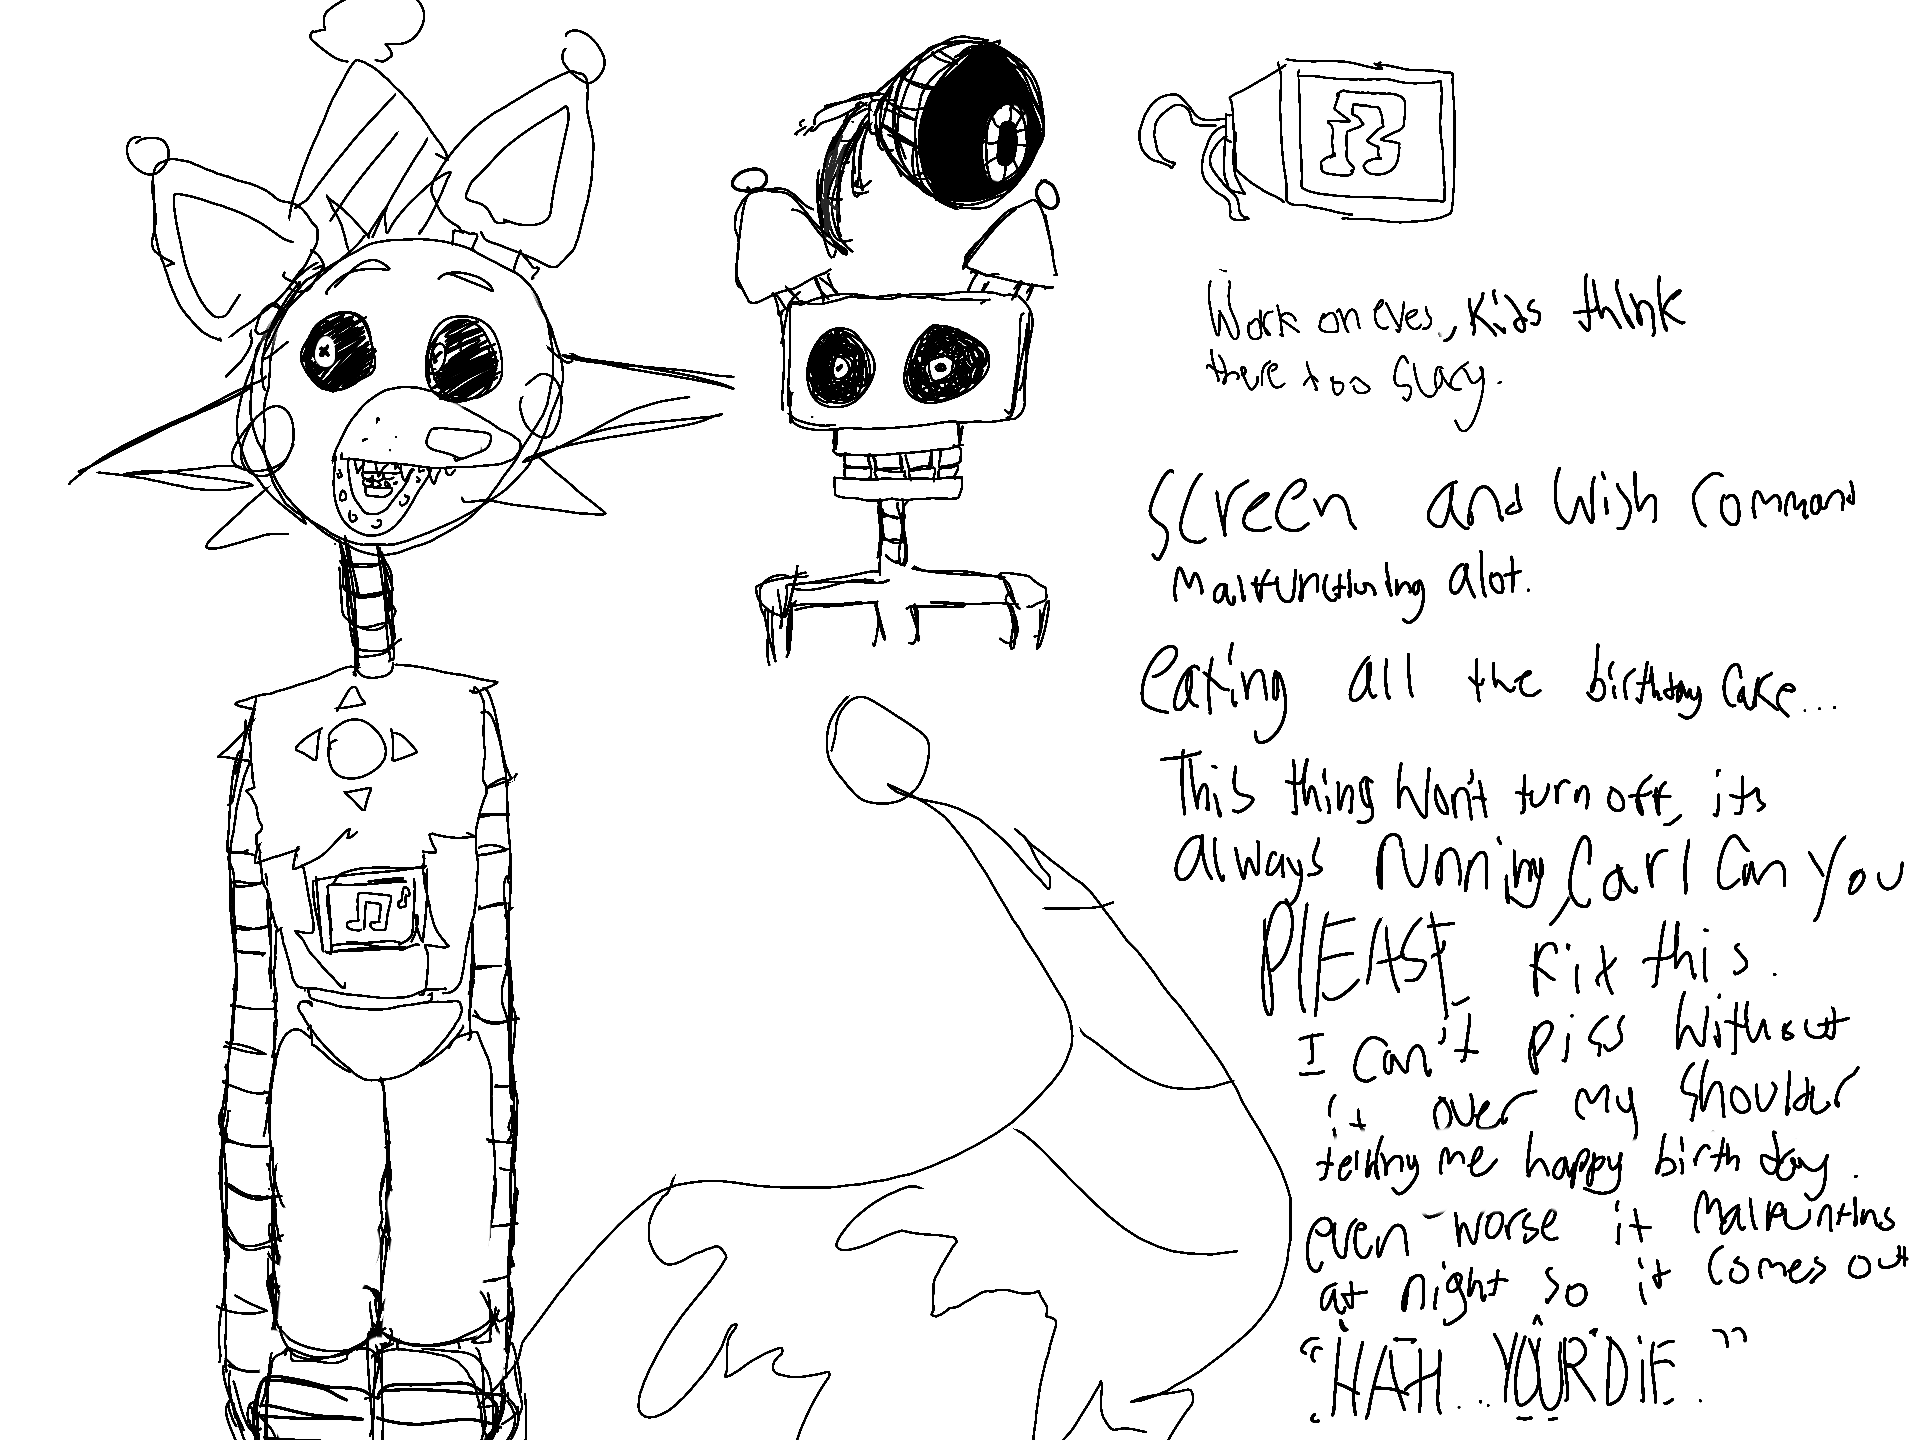 Work on eyes, kids think
there too scary.
Screen and wish command
malfunctioning alot.
eating all the birthday cake...
This thing won't turn off, its
always running, Carl can you
PLEASE fix this.
I can't piss without
it over my shoulder
telling me happy birthday.
even worse it malfuntins
at night so it comes out
"HAH...YOUR DIE."